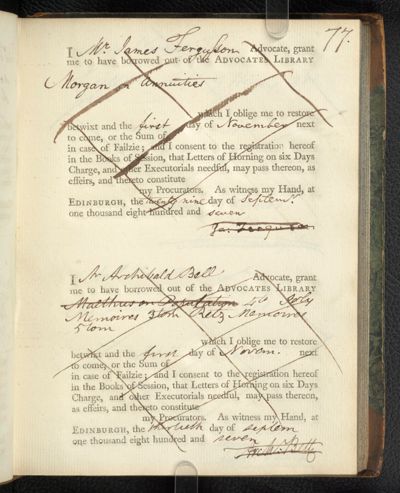 77.
I Mr. James Ferguson Advocate, grant
me to have borrowed out of the ADVOCATES LIBRARY
Morgan on Annuities
which I oblige me to restore
betwixt and the first day of November next
to come, or the Sum of
in case of Failzie; and I consent to the registration hereof
in the Books of Session, that Letters of Horning on six Days
Charge, and other Executorials needful, may pass thereon, as
effeirs, and thereto constitute
my Procurators. As witness my Hand, at
EDINBURGH, the twenty nine day of Septemr.
one thousand eight hundred and seven
Ja. Ferguson
I Mr Archibald Bell Advocate, grant
me to have borrowed out of the ADVOCATES LIBRARY
Malthus on Population 4o Joly
Memoires 3 tom Retz Memoires
5 tom
which I oblige me to restore
betwixt and the first day of Novem. next
to come, or the Sum of
in case of Failzie; and I consent to the registration hereof
in the Books of Session, that Letters of Horning on six Days
Charge, and other Executorials needful, may pass thereon,
as effeirs, and thereto constitute
my Procurators. As witness my Hand, at
EDINBURGH, the thirtieth day of septem
one thousand eight hundred and seven
Archd. Bell